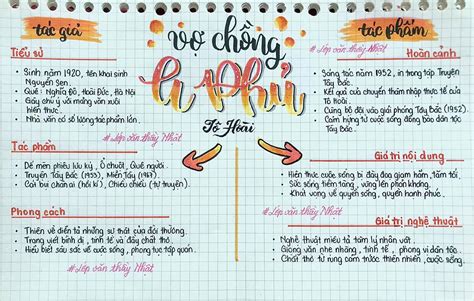 tác giả
Tiểu sử
Sinh năm 1920, tên khai sinh
Nguyễn Sen.
Quê: Nghĩa Đô, Hoài Đức, Hà Nội
Giấy chú ý với mảng văn xuôi
hiện thực.
Nhà văn có số lượng tác phẩm lớn.
#Lớp văn thầy Nhật
Tác phẩm
Dế mèn phiêu lưu ký, Ổ chuột, Quê người.
Truyện Tây Bắc (1953), Miền Tây (1967).
Cát bụi chân ai (hồi kí), Chiều chiều (tự truyện).
Phong cách
Thiên về diễn tả những sự thật của đời thường.
Trang viết bình dị, tinh tế và đầy chất thơ.
Hiểu biết sâu sắc về cuộc sống, phong tục tập quán.
#Lớp văn thầy Nhật
vợ chồng
A Phủ
Tô Hoài
tác phẩm
#Lớp văn thầy Nhất
Hoàn cảnh
Sáng tác năm 1952, in trong tập Truyện
Tây Bắc.
Kết quả của chuyến thâm nhập thực tế của
Tô Hoài.
Cùng bộ đội vào giải phóng Tây Bắc (1952)
Cảm hứng từ cuộc sống đồng bào dân tộc
Tây Bắc.
Giá trị nội dung
Hiện thực cuộc sống bị đày đoạ giam hãm, tăm tối.
Sức sống tiềm tàng, vùng lên phản kháng.
Khát vọng về quyền sống, quyền hạnh phúc.
#Lớp văn thầy Nhất
Giá trị nghệ thuật
Nghệ thuật miêu tả tâm lý nhân vật.
Giọng văn nhẹ nhàng, tinh tế, phong vị dân tộc.
Chất thơ từ rung cảm trước thiên nhiên, cuộc sống.